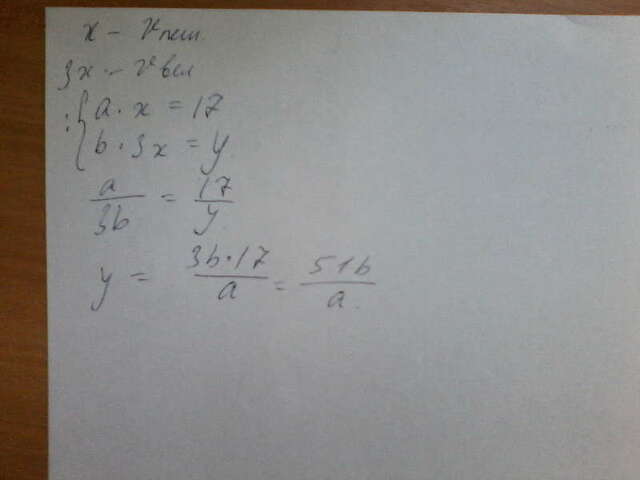 x - v пеш.
3x - v вел
: { a · x = 17
b · 3x = y
a/3b = 17/y
y = 3b·17/a = 51b/a.